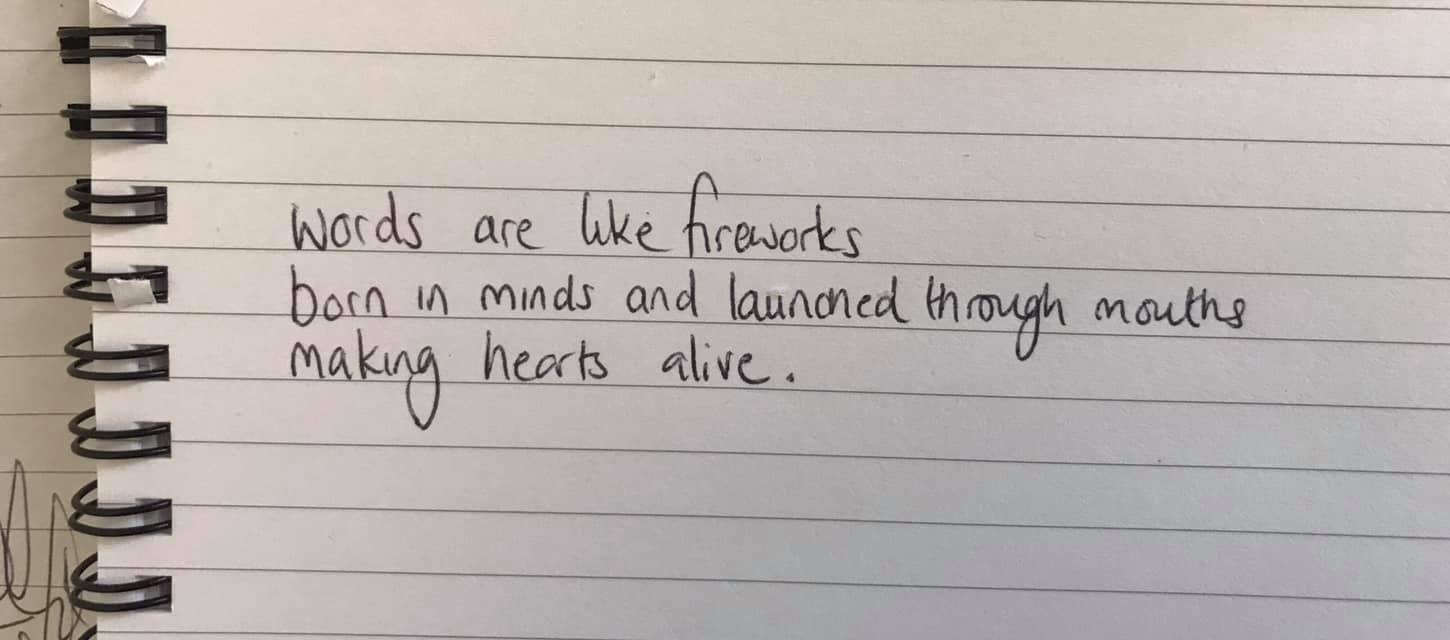 words are like fireworks
born in minds and launched through mouths
making hearts alive.